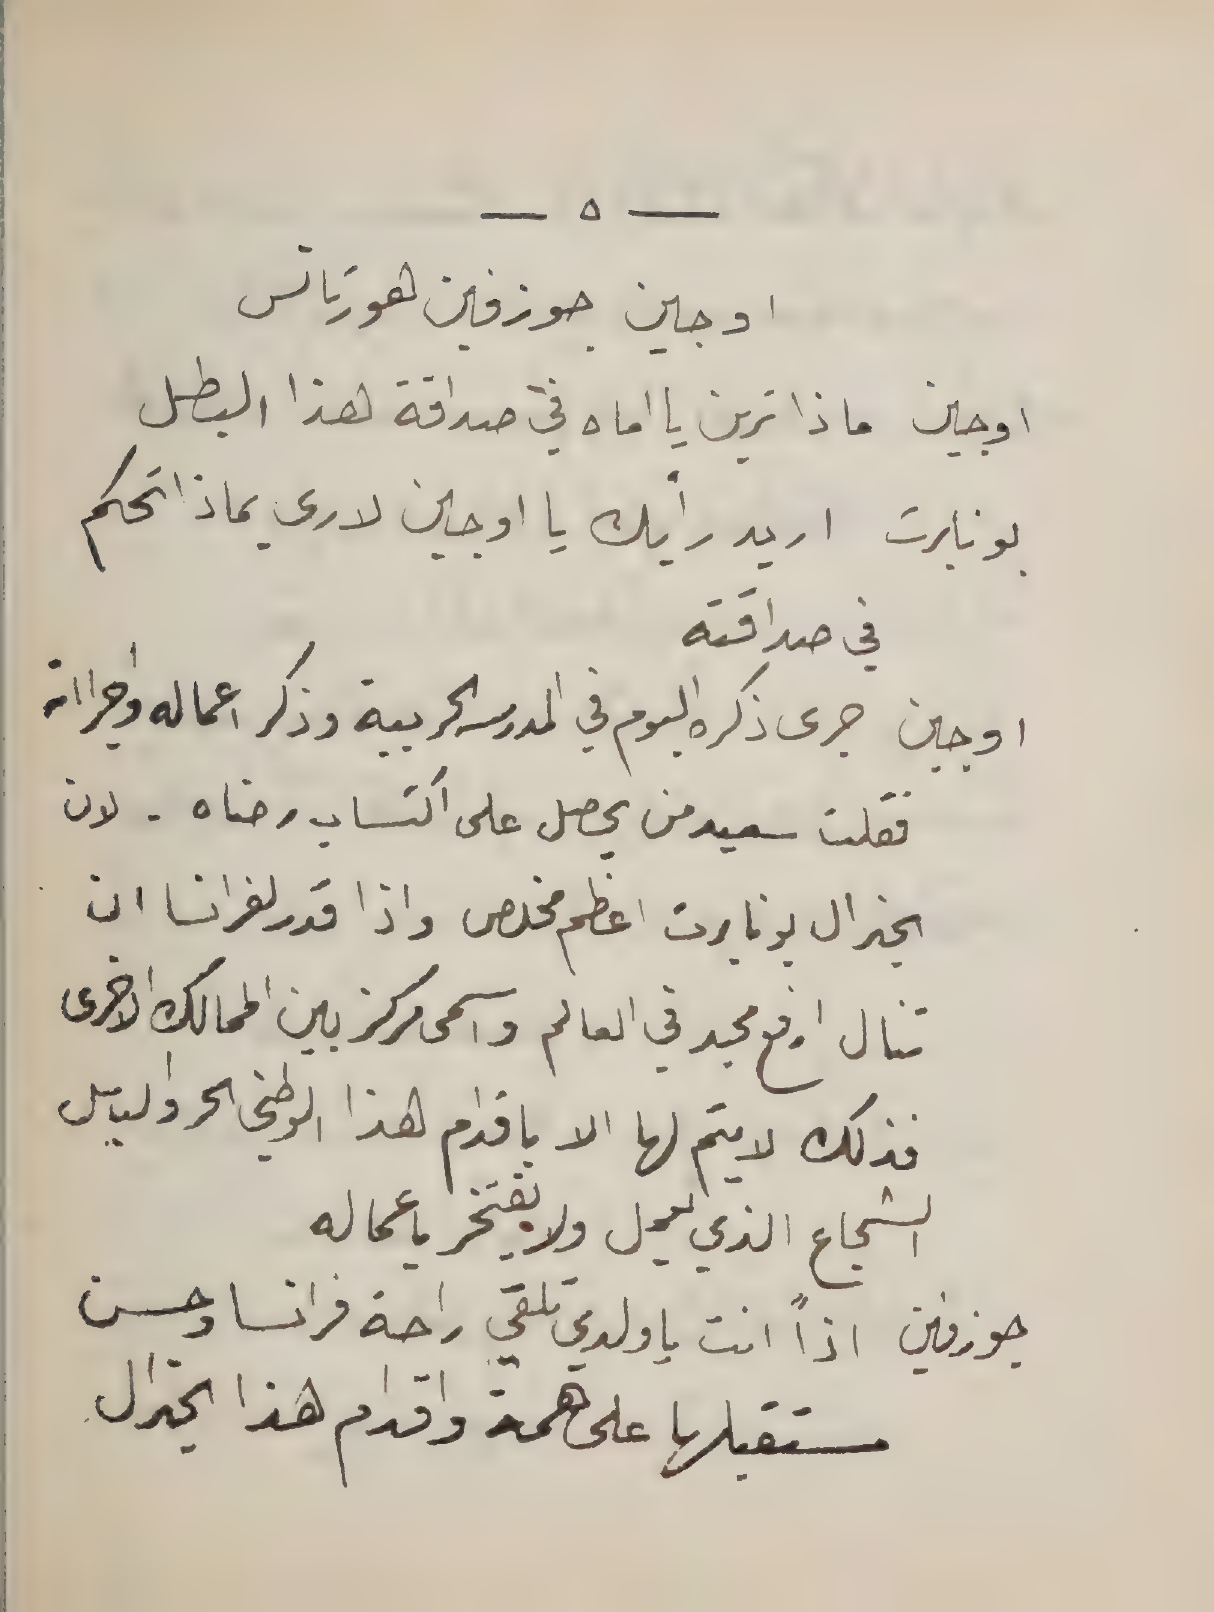 — ٥ —
اوجين جوزفين هورتانس
اوجين ماذا ترين يا اماه في صداقة هذا البطل
بونابرت اريد رأيك يا اوجين لارى بماذا تحكم
في صداقته
اوجين جرى ذكره اليوم في المدرسه الحربية وذكر اعماله واجرااته
فقلت سعيد من يحصل على اكتساب رضاه . لان
الجنرال بونابرت اعظم مخلص واذا قدر لفرانسا ان
تنال ارفع مجد في العالم واسمى مركز بين الممالك الاخرى
فذلك لا يتم لها الا باقدام هذا الوطني الحر والباسل
الشجاع الذي يعمل ولا يفتخر باعماله
جوزفين اذاً انت يا ولدي تلقي راحة فرانسا وحسن
مستقبلها على همة واقدام هذا الجنرال